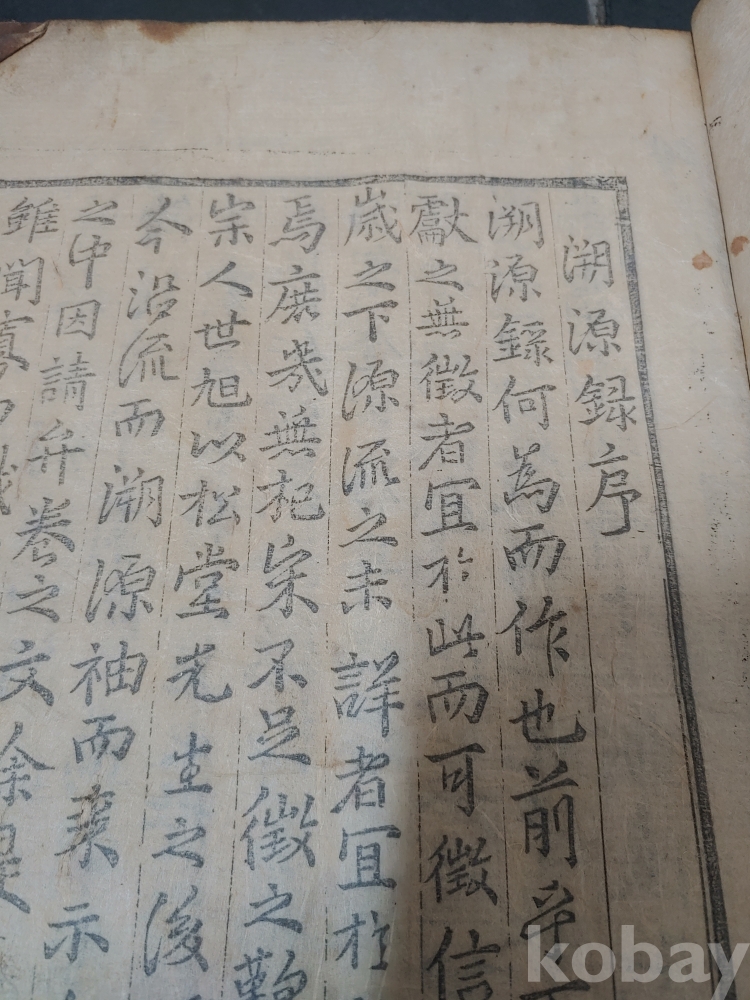 溯源錄序
溯源錄何為而作也前乎
獻之無徵者宜於此而可徵信
歲之下源流之未詳者宜於
焉庶幾無杞宋不足徵之歎
宗人世旭以松堂先生之後
今沿流而溯源袖而來示
之中因請弁卷之文余
雖聞寡
kobay